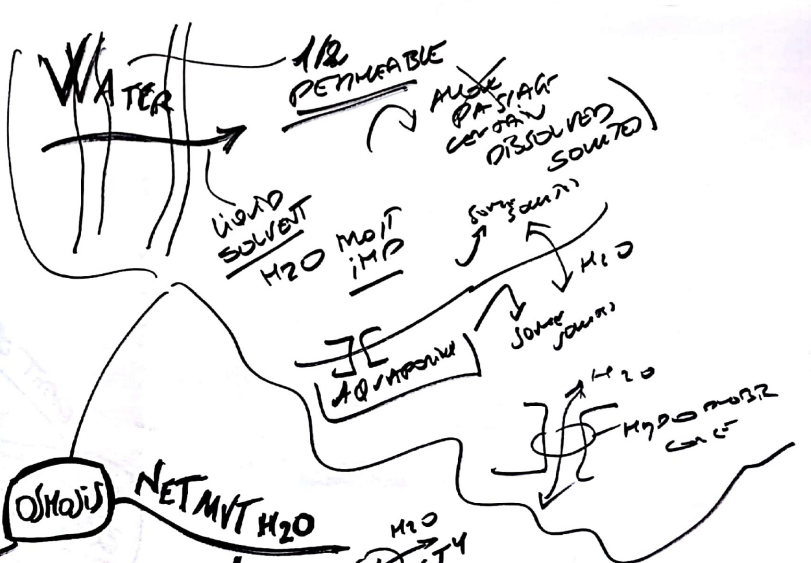 WATER
1/2
PERMEABLE
ALLOW
PASSAGE
CERTAIN
DISSOLVED
SOLUTES)
LIQUID
SOLVENT
H2O MOST
IMP
SOME SOLUTES
H2O
SOME
SOLUTES
AQUAPORINS
H2O
OSMOSIS
NET MVT H2O
H2O